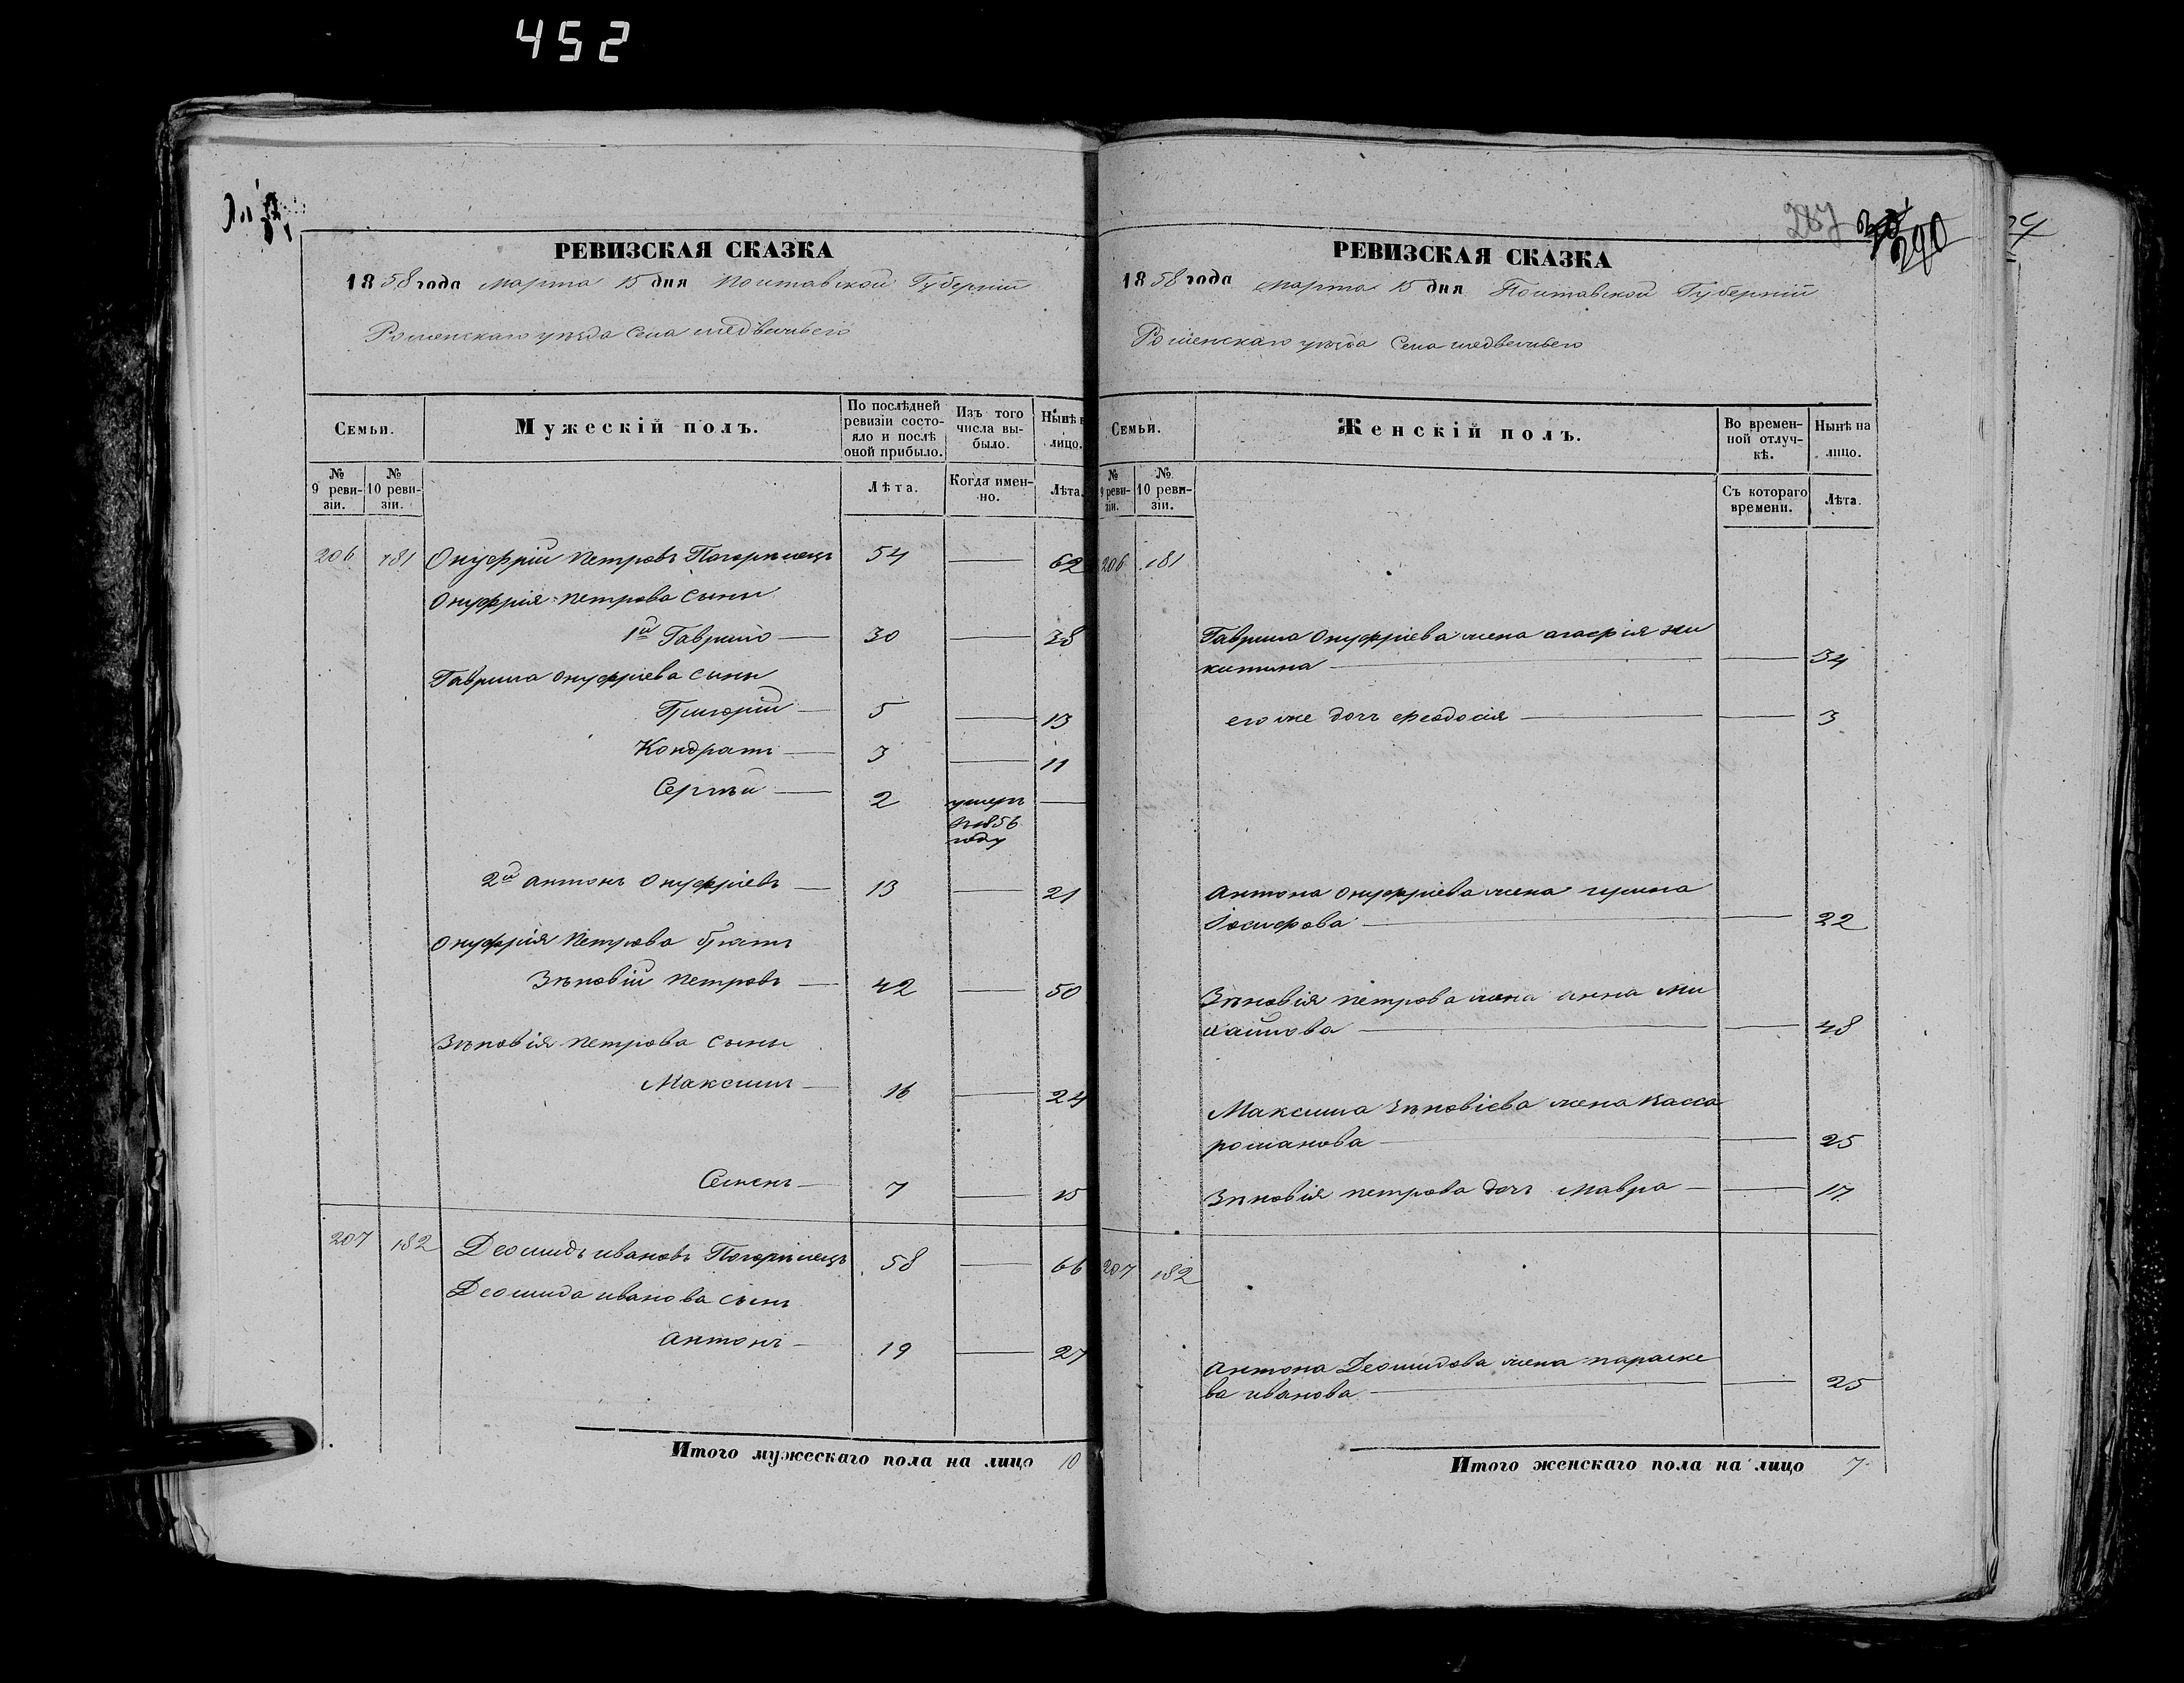 452
РЕВИЗСКАЯ СКАЗКА
1858 года марта 15 дня Полтавской Губерніи
Роменскаго уѣзда Села медвежьего
Семьи.
Мужескій полъ.
По послѣдней ревизіи состояло и послѣ оной прибыло.
Изъ того числа выбыло.
Нынѣ н
лицо.
№ 9 ревизіи.
№ 10 ревизіи.
Лѣта.
Когда именно.
Лѣта.
206 181 Онуфрій Петровъ Погорѣлецъ 54 — 62
Онуфрія Петрова Сыны
1й Гаврило — 30 — 38
Гаврила Онуфріева Сыны
Григорій — 5 — 13
Кондратъ — 3 — 11
Сергѣй — 2 умеръ —
въ 1856
году
2й Антонъ Онуфріевъ — 13 — 21
Онуфрія Петрова братъ
Зѣновій Петровъ — 42 — 50
Зѣновія Петрова Сыны
Максимъ — 16 — 24
Семенъ — 7 — 15
207 182 Деомидъ ивановъ Погорѣлецъ 58 — 66
Деомида иванова сынъ
Антонъ — 19 — 27
Итого мужескаго пола на лицо 10
287
290
РЕВИЗСКАЯ СКАЗКА
1858 года марта 15 дня Полтавской Губерніи
Роменскаго уѣзда Села медвежьего
Семьи.
Женскій полъ.
Во временной отлучкѣ.
Нынѣ на лицо.
№ 9 ревизіи.
№ 10 ревизіи.
Съ котораго времени.
Лѣта.
206 181
Гаврила Онуфріева жена агафія Ни
китина — — 34
его же дочь феодосія — — 3
Антона Онуфріева жена
Іосифова — — 22
Зѣновія петрова жена анна Ми
хайлова — — 48
Максима Зѣновіева жена Васса
романова — — 25
Зѣновія петрова дочь Мавра — — 17
207 182
Антона Деомидова жена параске
ва иванова — — 25
Итого женскаго пола на лицо 7